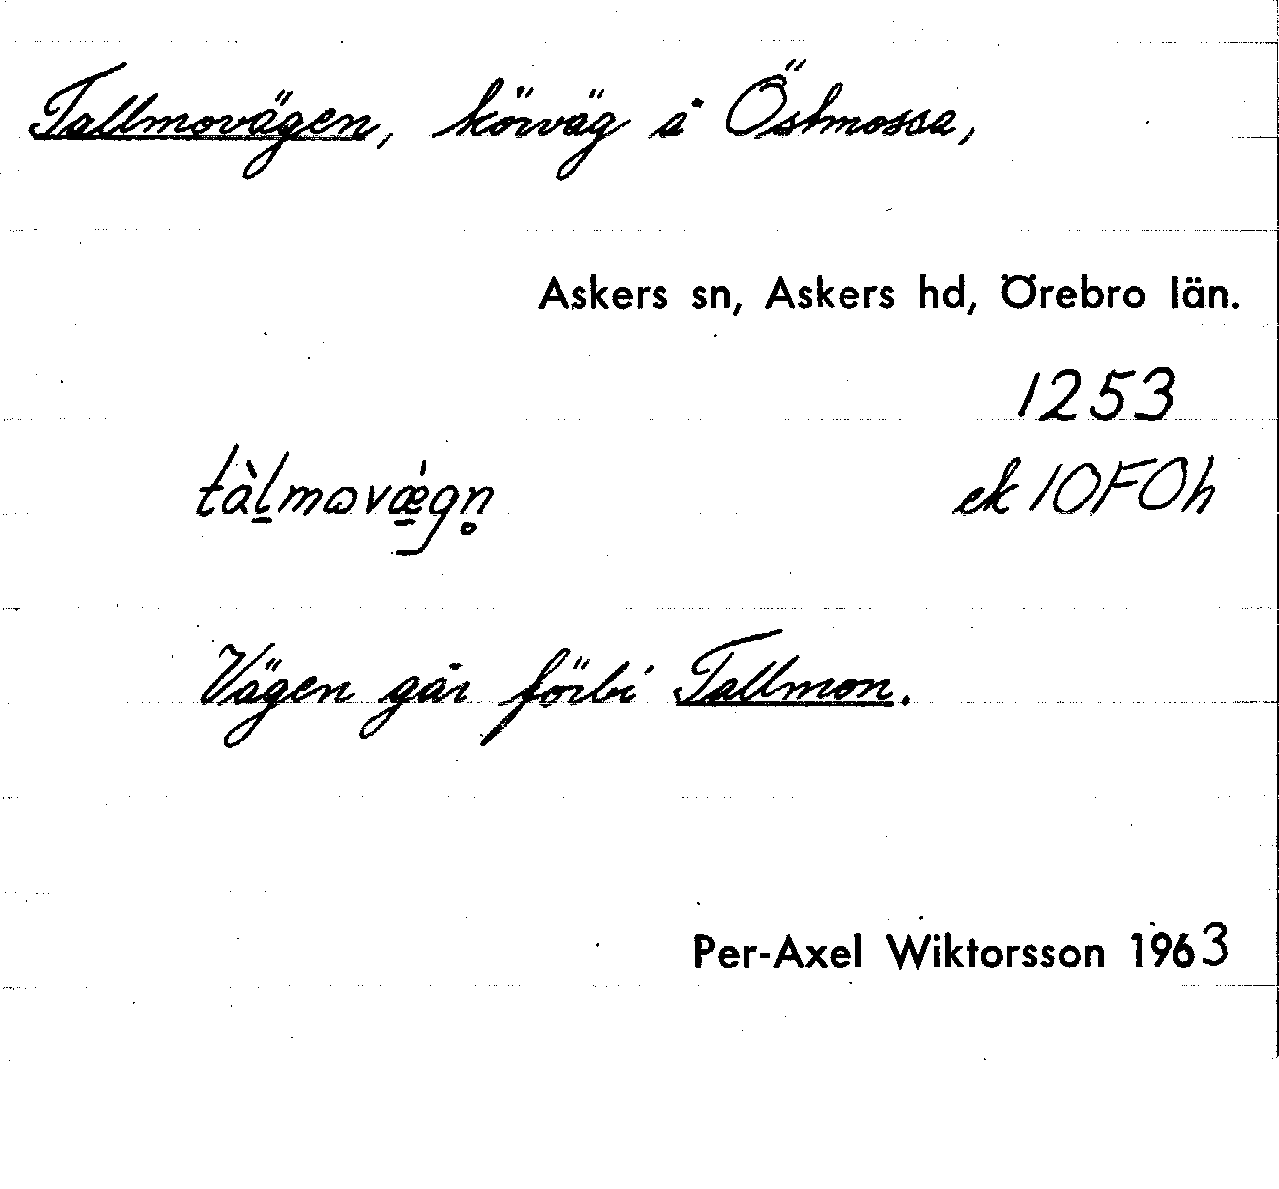 Tallmovägen, körväg å Östmossa,
Askers sn, Askers hd, Örebro län.
1253
tàl̠mωvǽ̠gn̥ ek 10F0h
Vägen går förbi Tallmon.
Per-Axel Wiktorsson 1963